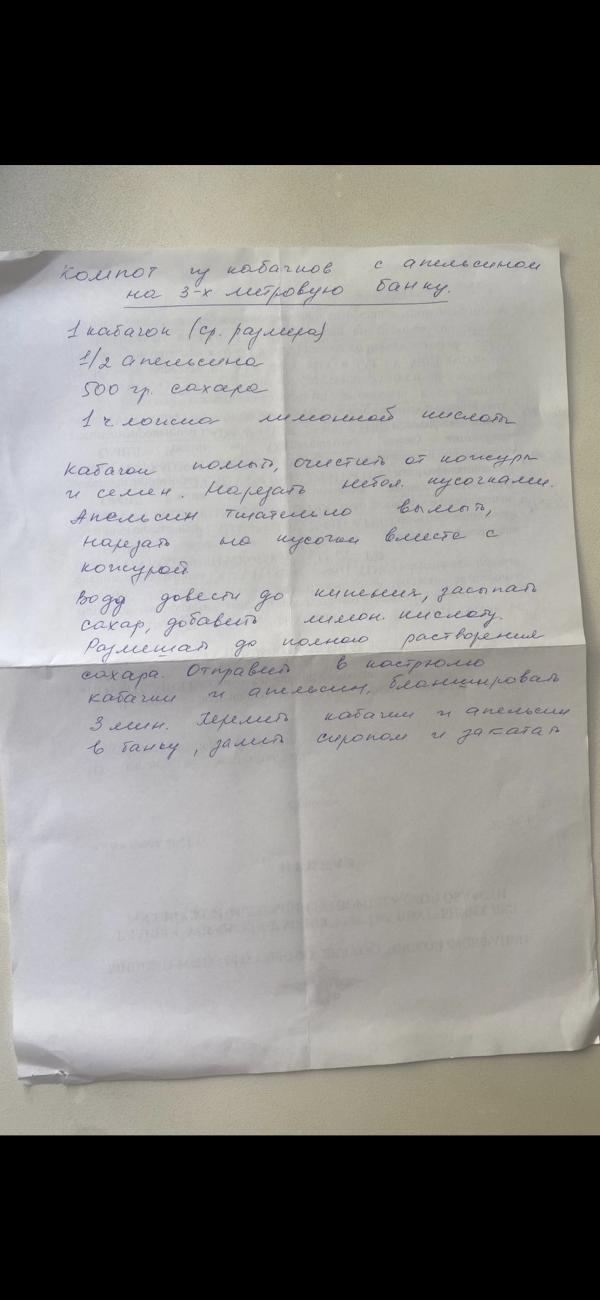 Компот из кабачков с апельсином
на 3-х метровую банку.
1 кабачок (ср. размера)
1/2 апельсина
500 гр. сахара
1 ч ложка лимонной кислоты
Кабачок помыть, очистить от кожуры
и семян. Нарезать небол. кусочками.
Апельсин тщательно вымыть,
нарезать на кусочки вместе с
кожурой
Воду довести до кипения, засыпать
сахар, добавить лимон. кислоту.
Размешать до полного растворения
сахара. Отправить в кастрюлю
кабачки и апельсин, бланшировать
3 мин. кабачки и апельсин
в банку, залить сиропом и закатать